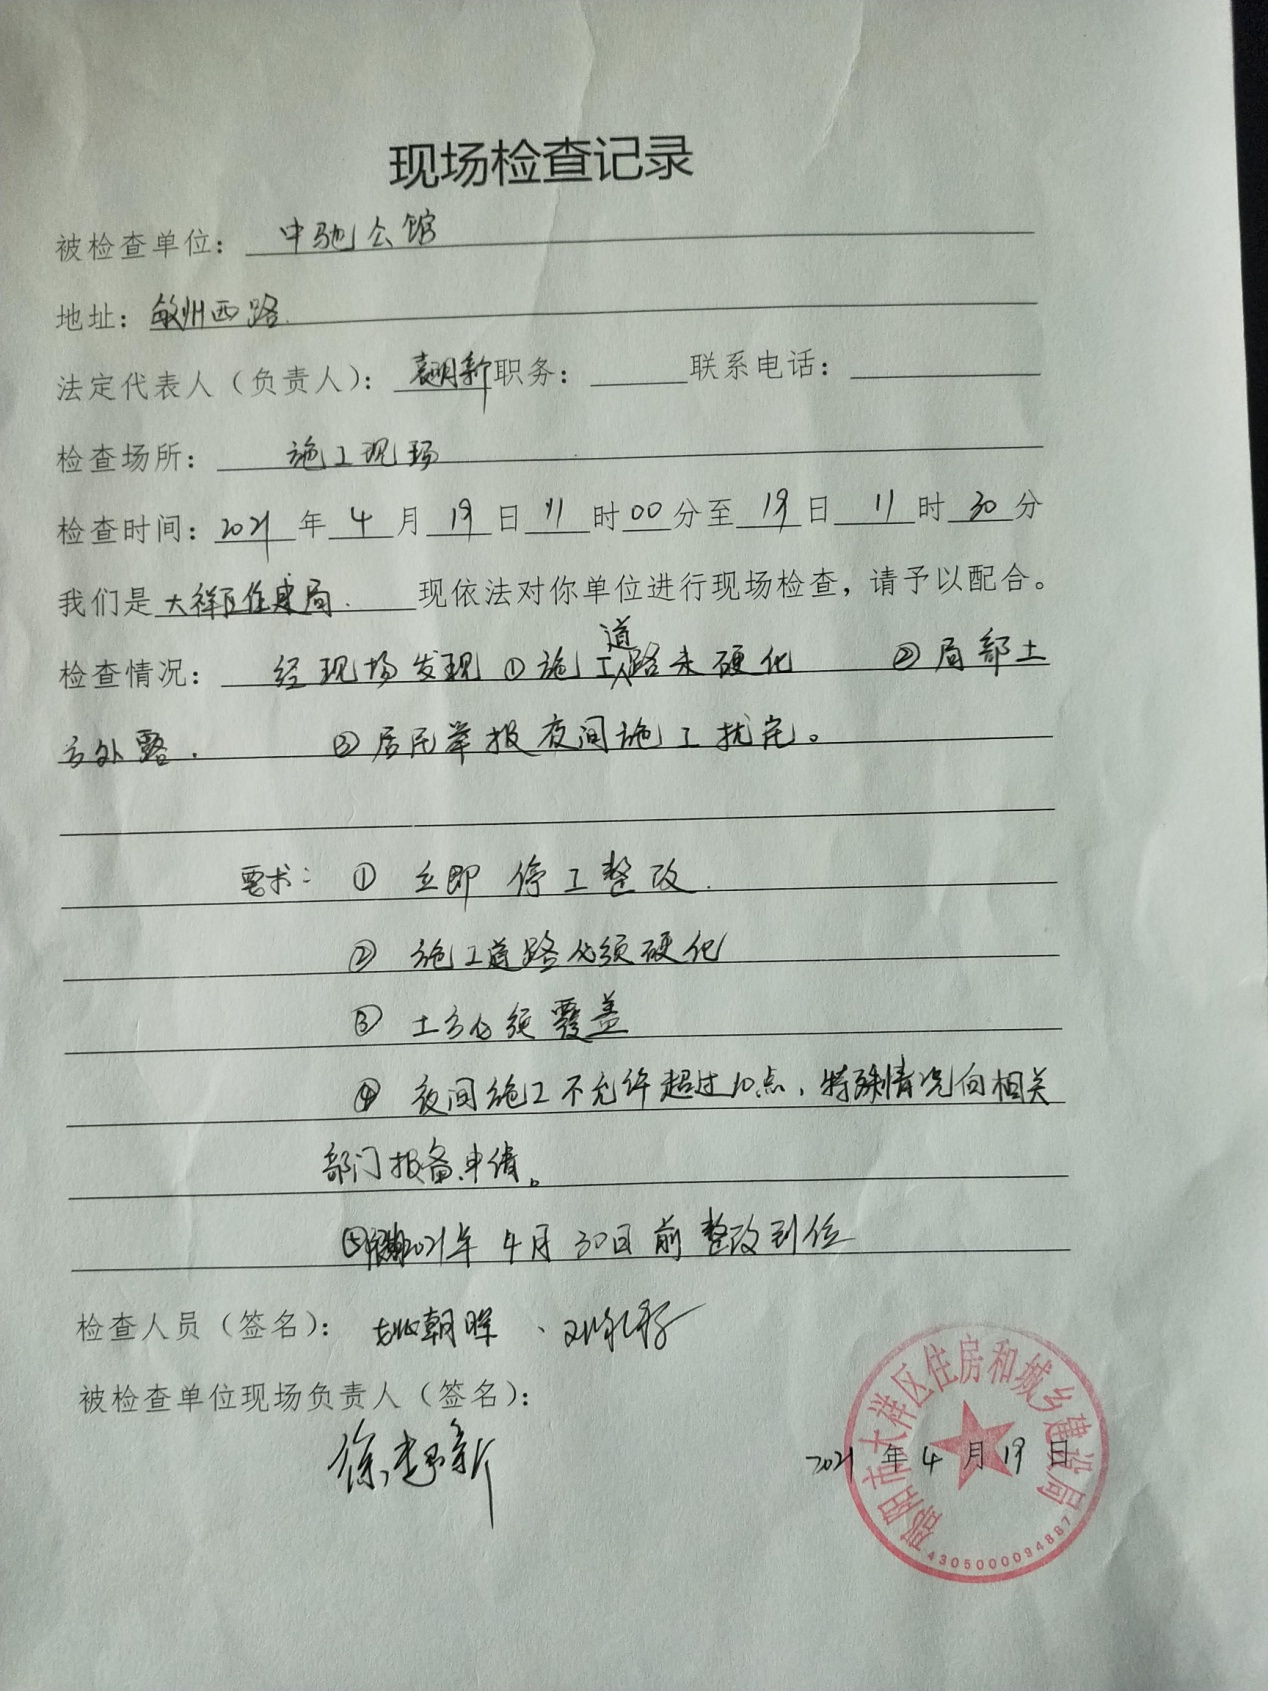 现场检查记录
被检查单位：中驰公馆
地址：敏州西路.
法定代表人（负责人）：袁明新 职务： 联系电话：
检查场所：施工现场
检查时间：2021年4月19日11时00分至19日11时30分
我们是大祥区住建局. 现依法对你单位进行现场检查，请予以配合。
检查情况：经现场发现①施工道路未硬化 ②局部土
方外露. ③居民举报夜间施工扰民。
要求：①立即停工整改.
②施工道路必须硬化
③土方必须覆盖
④夜间施工不允许超过10点，特殊情况向相关
部门报备申请。
⑤2021年4月30日前整改到位
检查人员（签名）：姚朝晖、
被检查单位现场负责人（签名）：
2021年4月19日
邵阳市大祥区住房和城乡建设局
4305000094887